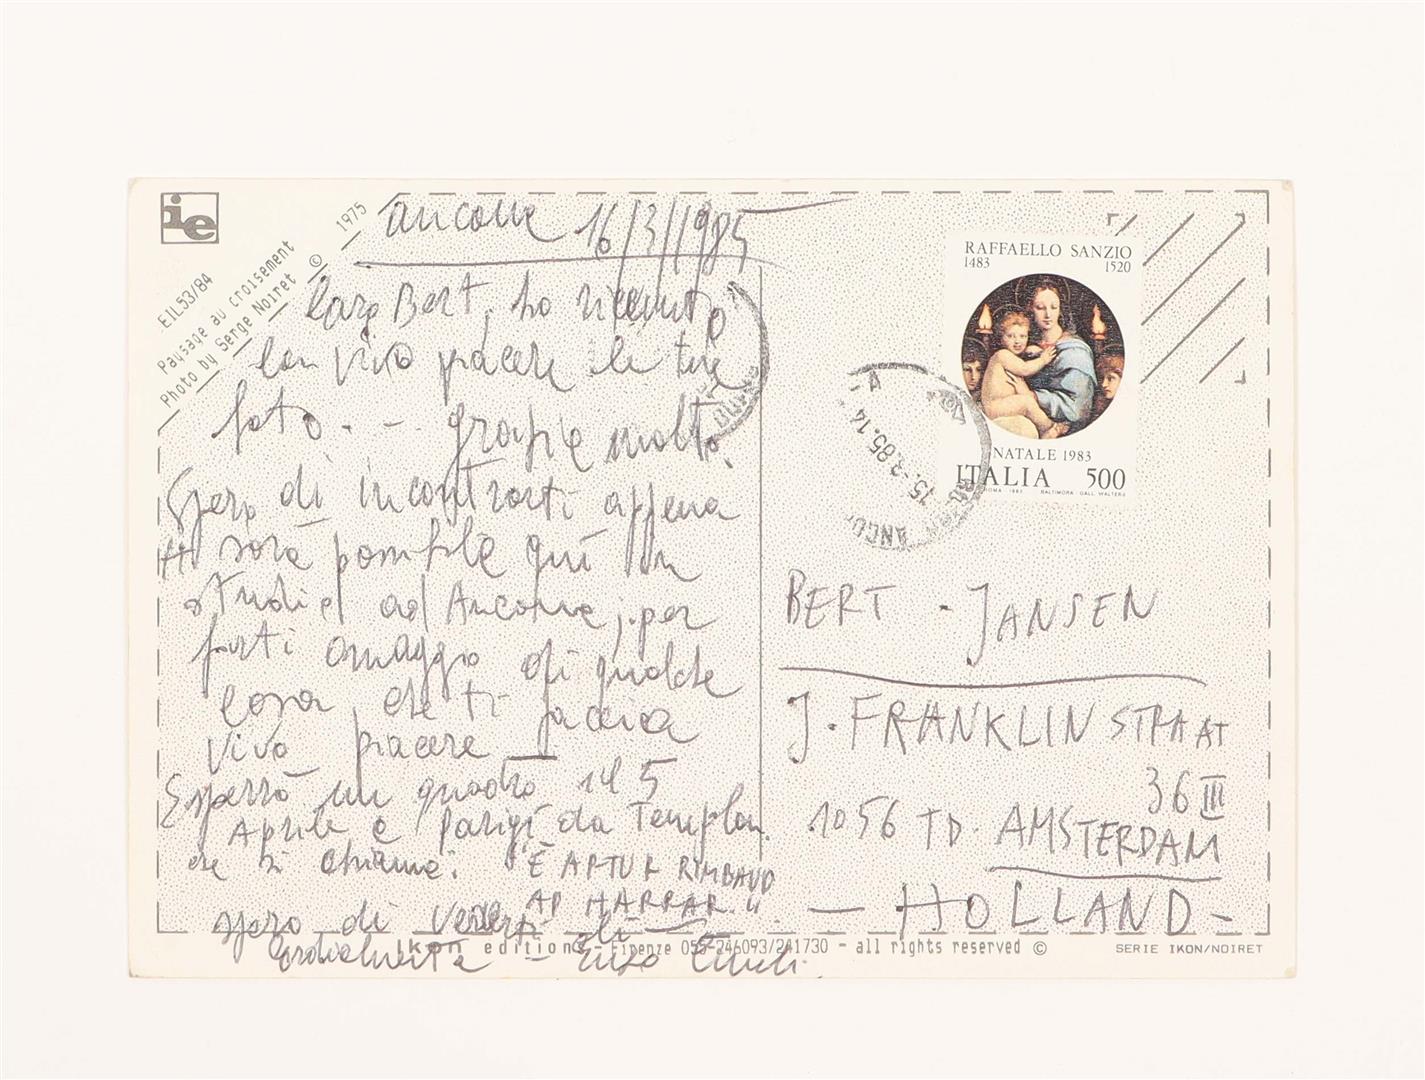 ie
EIL53/84
Paysage au croisement
Photo by Serge Noiret © 1975
Ancona 16/3/1985
Caro Bert, ho ricevuto
con vivo piacere le tue
foto. - - grazie molto.
Spero di incontrarti appena
sarà possibile qui in
studio ad Ancona, per
farti omaggio di qualche
cosa che ti faccia
vivo piacere
Esporrò un quadro il 5
Aprile a Parigi da Templon.
che si chiama: "È ARTUR RIMBAUD
AD HARRAR"
spero di vederti lì
Cordialmente - Enzo Cucchi.
RAFFAELLO SANZIO
1483 1520
NATALE 1983
ITALIA 500
ROMA 1983 BALTIMORA - GALL. WALTERS
15.-3.85.14
BERT - JANSEN
J. FRANKLINSTRAAT
36 III
1056 TD. AMSTERDAM
- HOLLAND -
ikon editions - Firenze 055-246093/241730 - all rights reserved ©
SERIE IKON/NOIRET